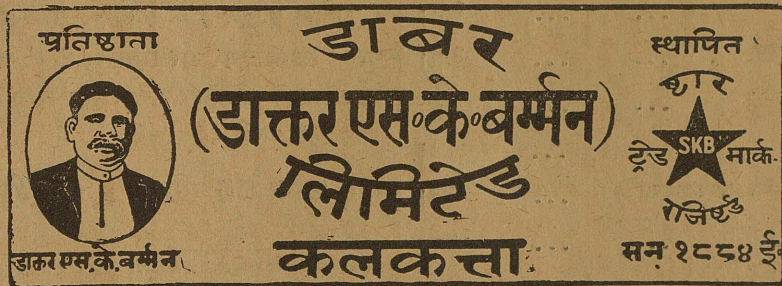 प्रतिष्ठाता
डाक्तर एस.के.बर्म्मन
डाबर
(डाक्तर एस॰के॰बर्म्मन)
लिमिटेड
कलकत्ता
स्थापित
ष्टार
ट्रेड SKB मार्क
रेजिष्टर्ड
सन् १८८४ ई.